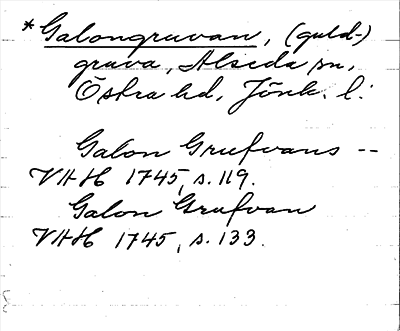 *Galongruvan, (guld-)
gruva, Alseda sn,
Östra hd, Jönk. l.
Galon Grufvans --
VHH 1745, s. 119.
Galon Grufvan
VHH 1745, s. 133.